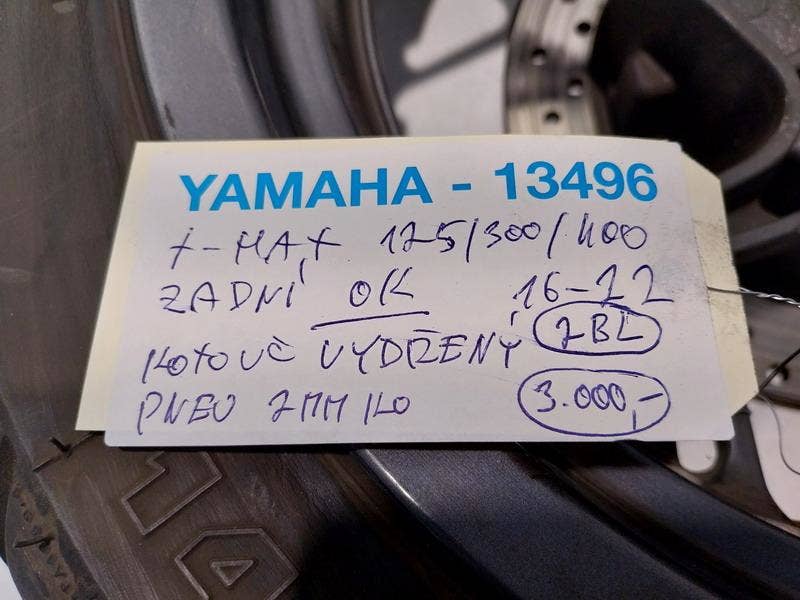 YAMAHA - 13496
X-MAX 125/300/400
ZADNÍ OK 16-22
KOTOUČ VYDŘENÝ 2BL
PNEU 2MM KO 3.000,-